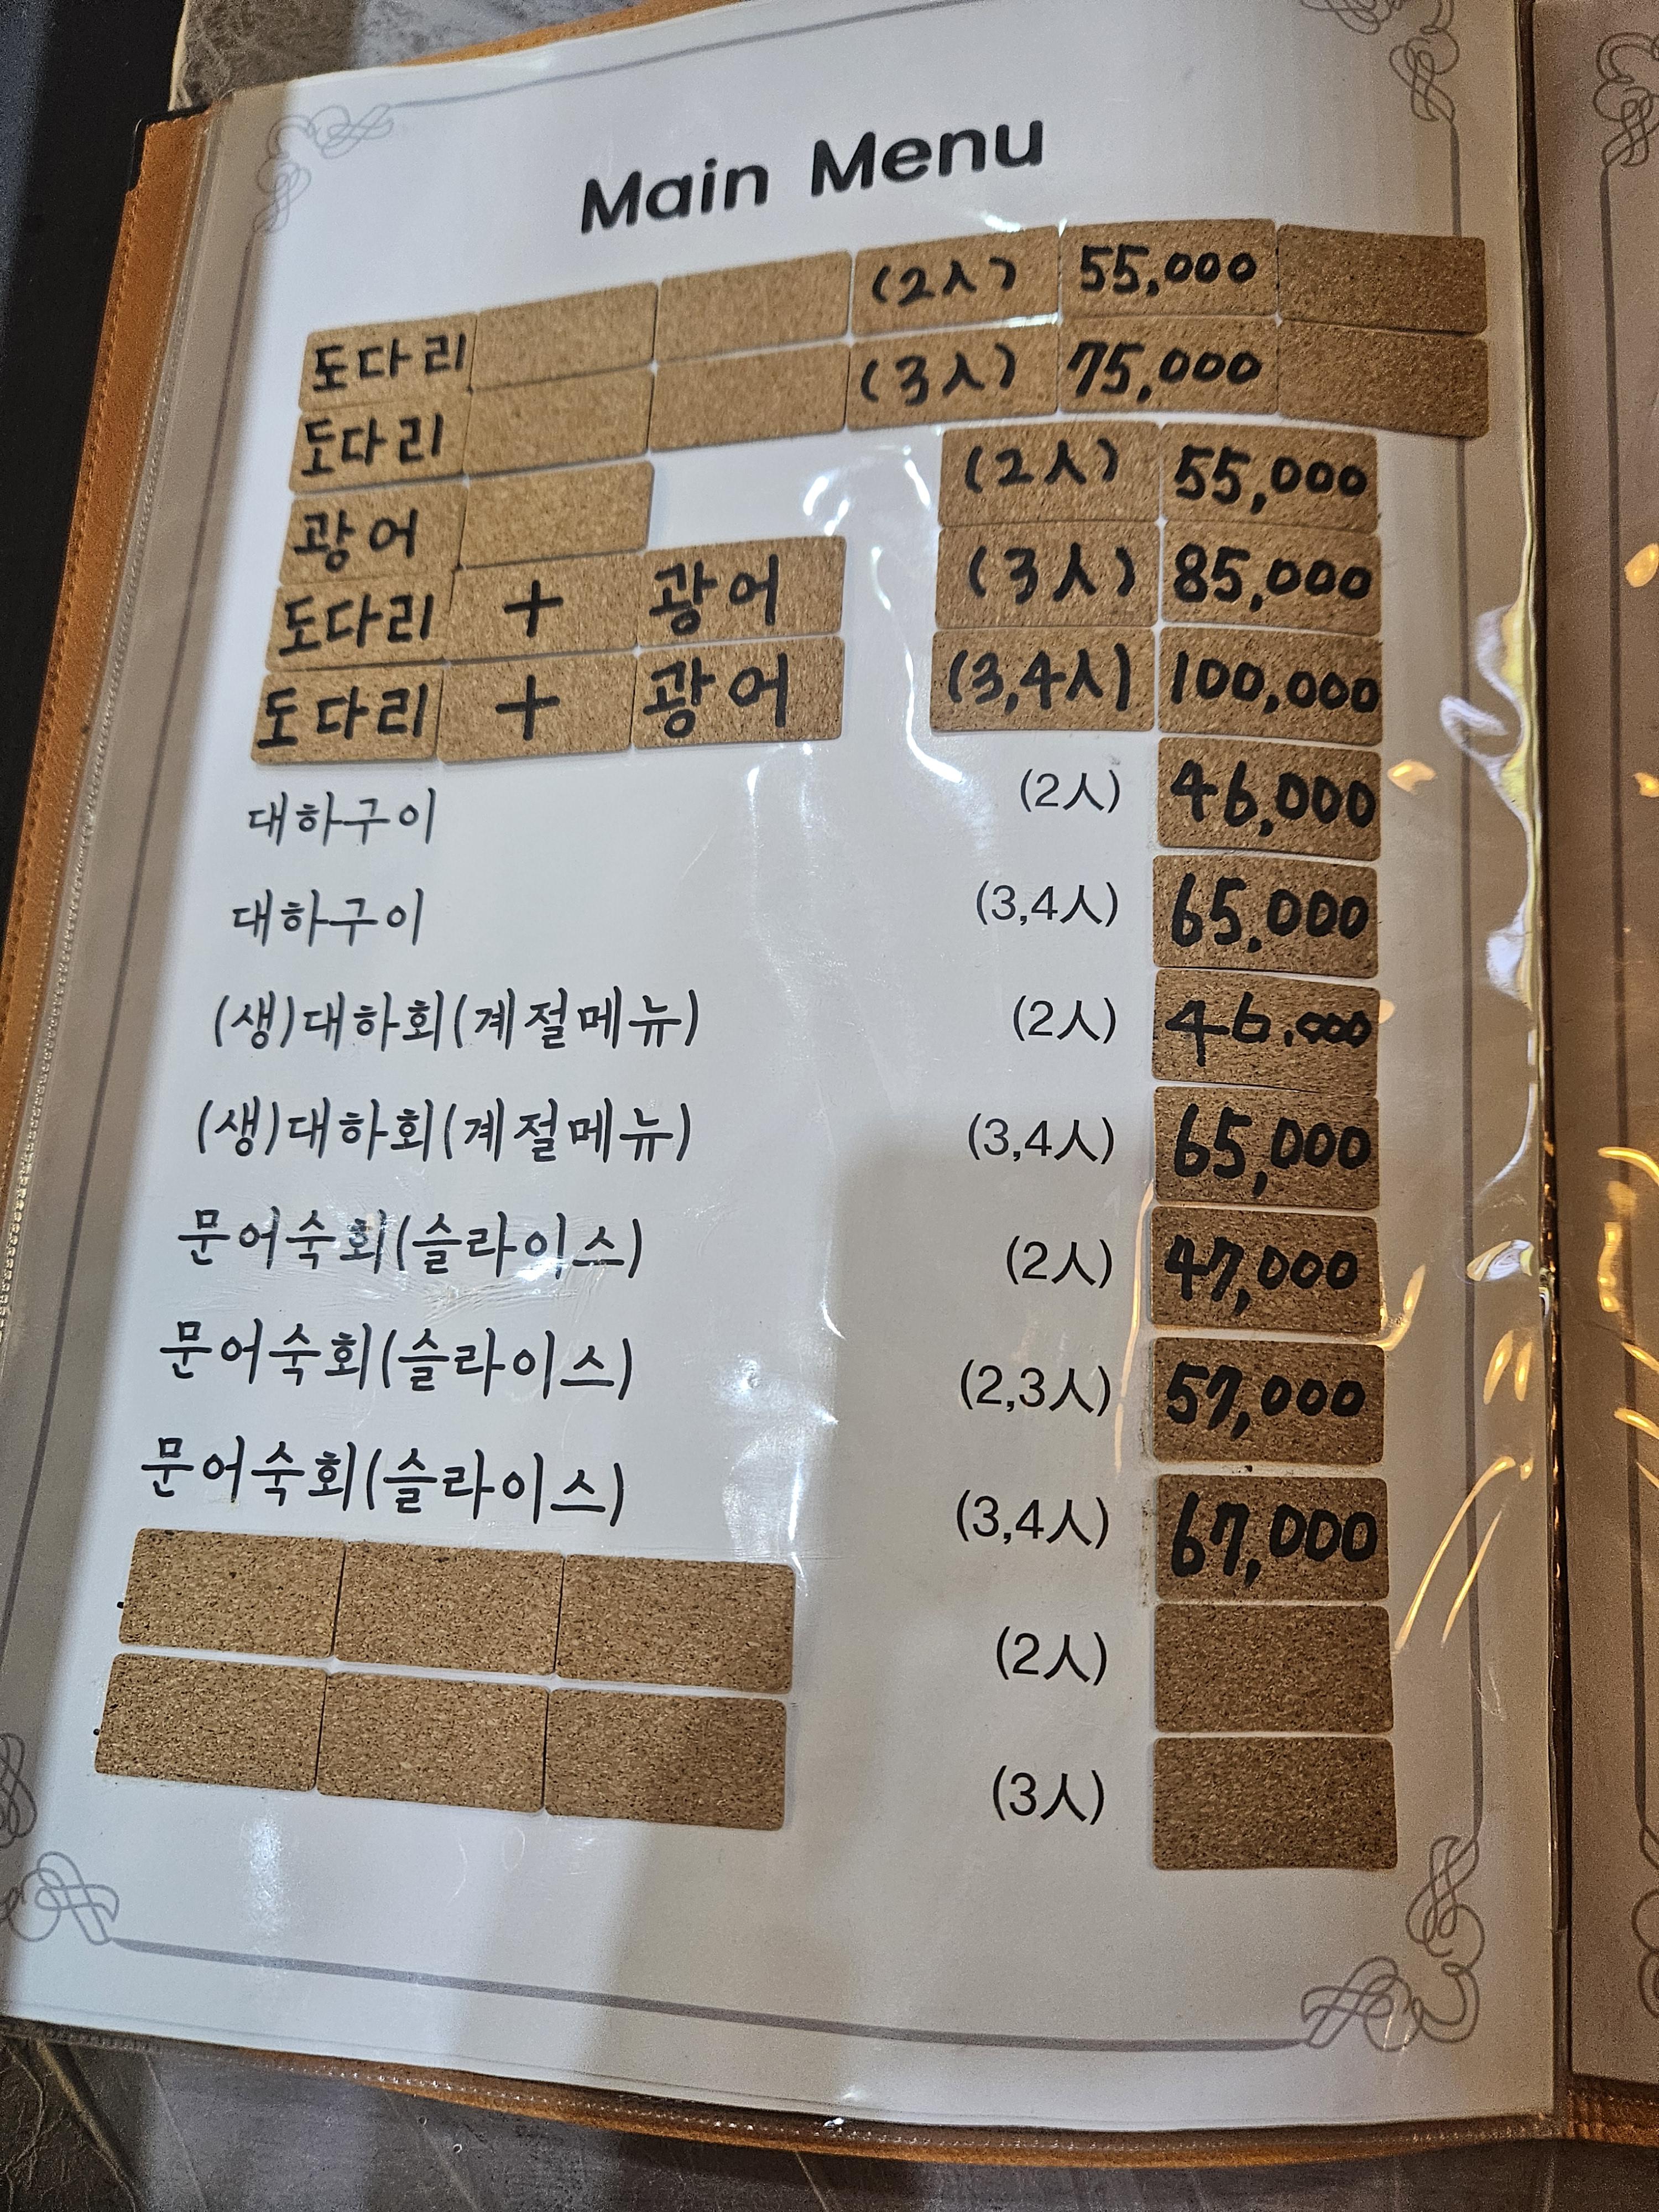 Main Menu
도다리 (2人) 55,000
도다리 (3人) 75,000
광어 (2人) 55,000
도다리 + 광어 (3人) 85,000
도다리 + 광어 (3,4人) 100,000
대하구이 (2人) 46,000
대하구이 (3,4人) 65,000
(생)대하회(계절메뉴) (2人) 46.000
(생)대하회(계절메뉴) (3,4人) 65,000
문어숙회(슬라이스) (2人) 47,000
문어숙회(슬라이스) (2,3人) 57,000
문어숙회(슬라이스) (3,4人) 67,000
(2人)
(3人)